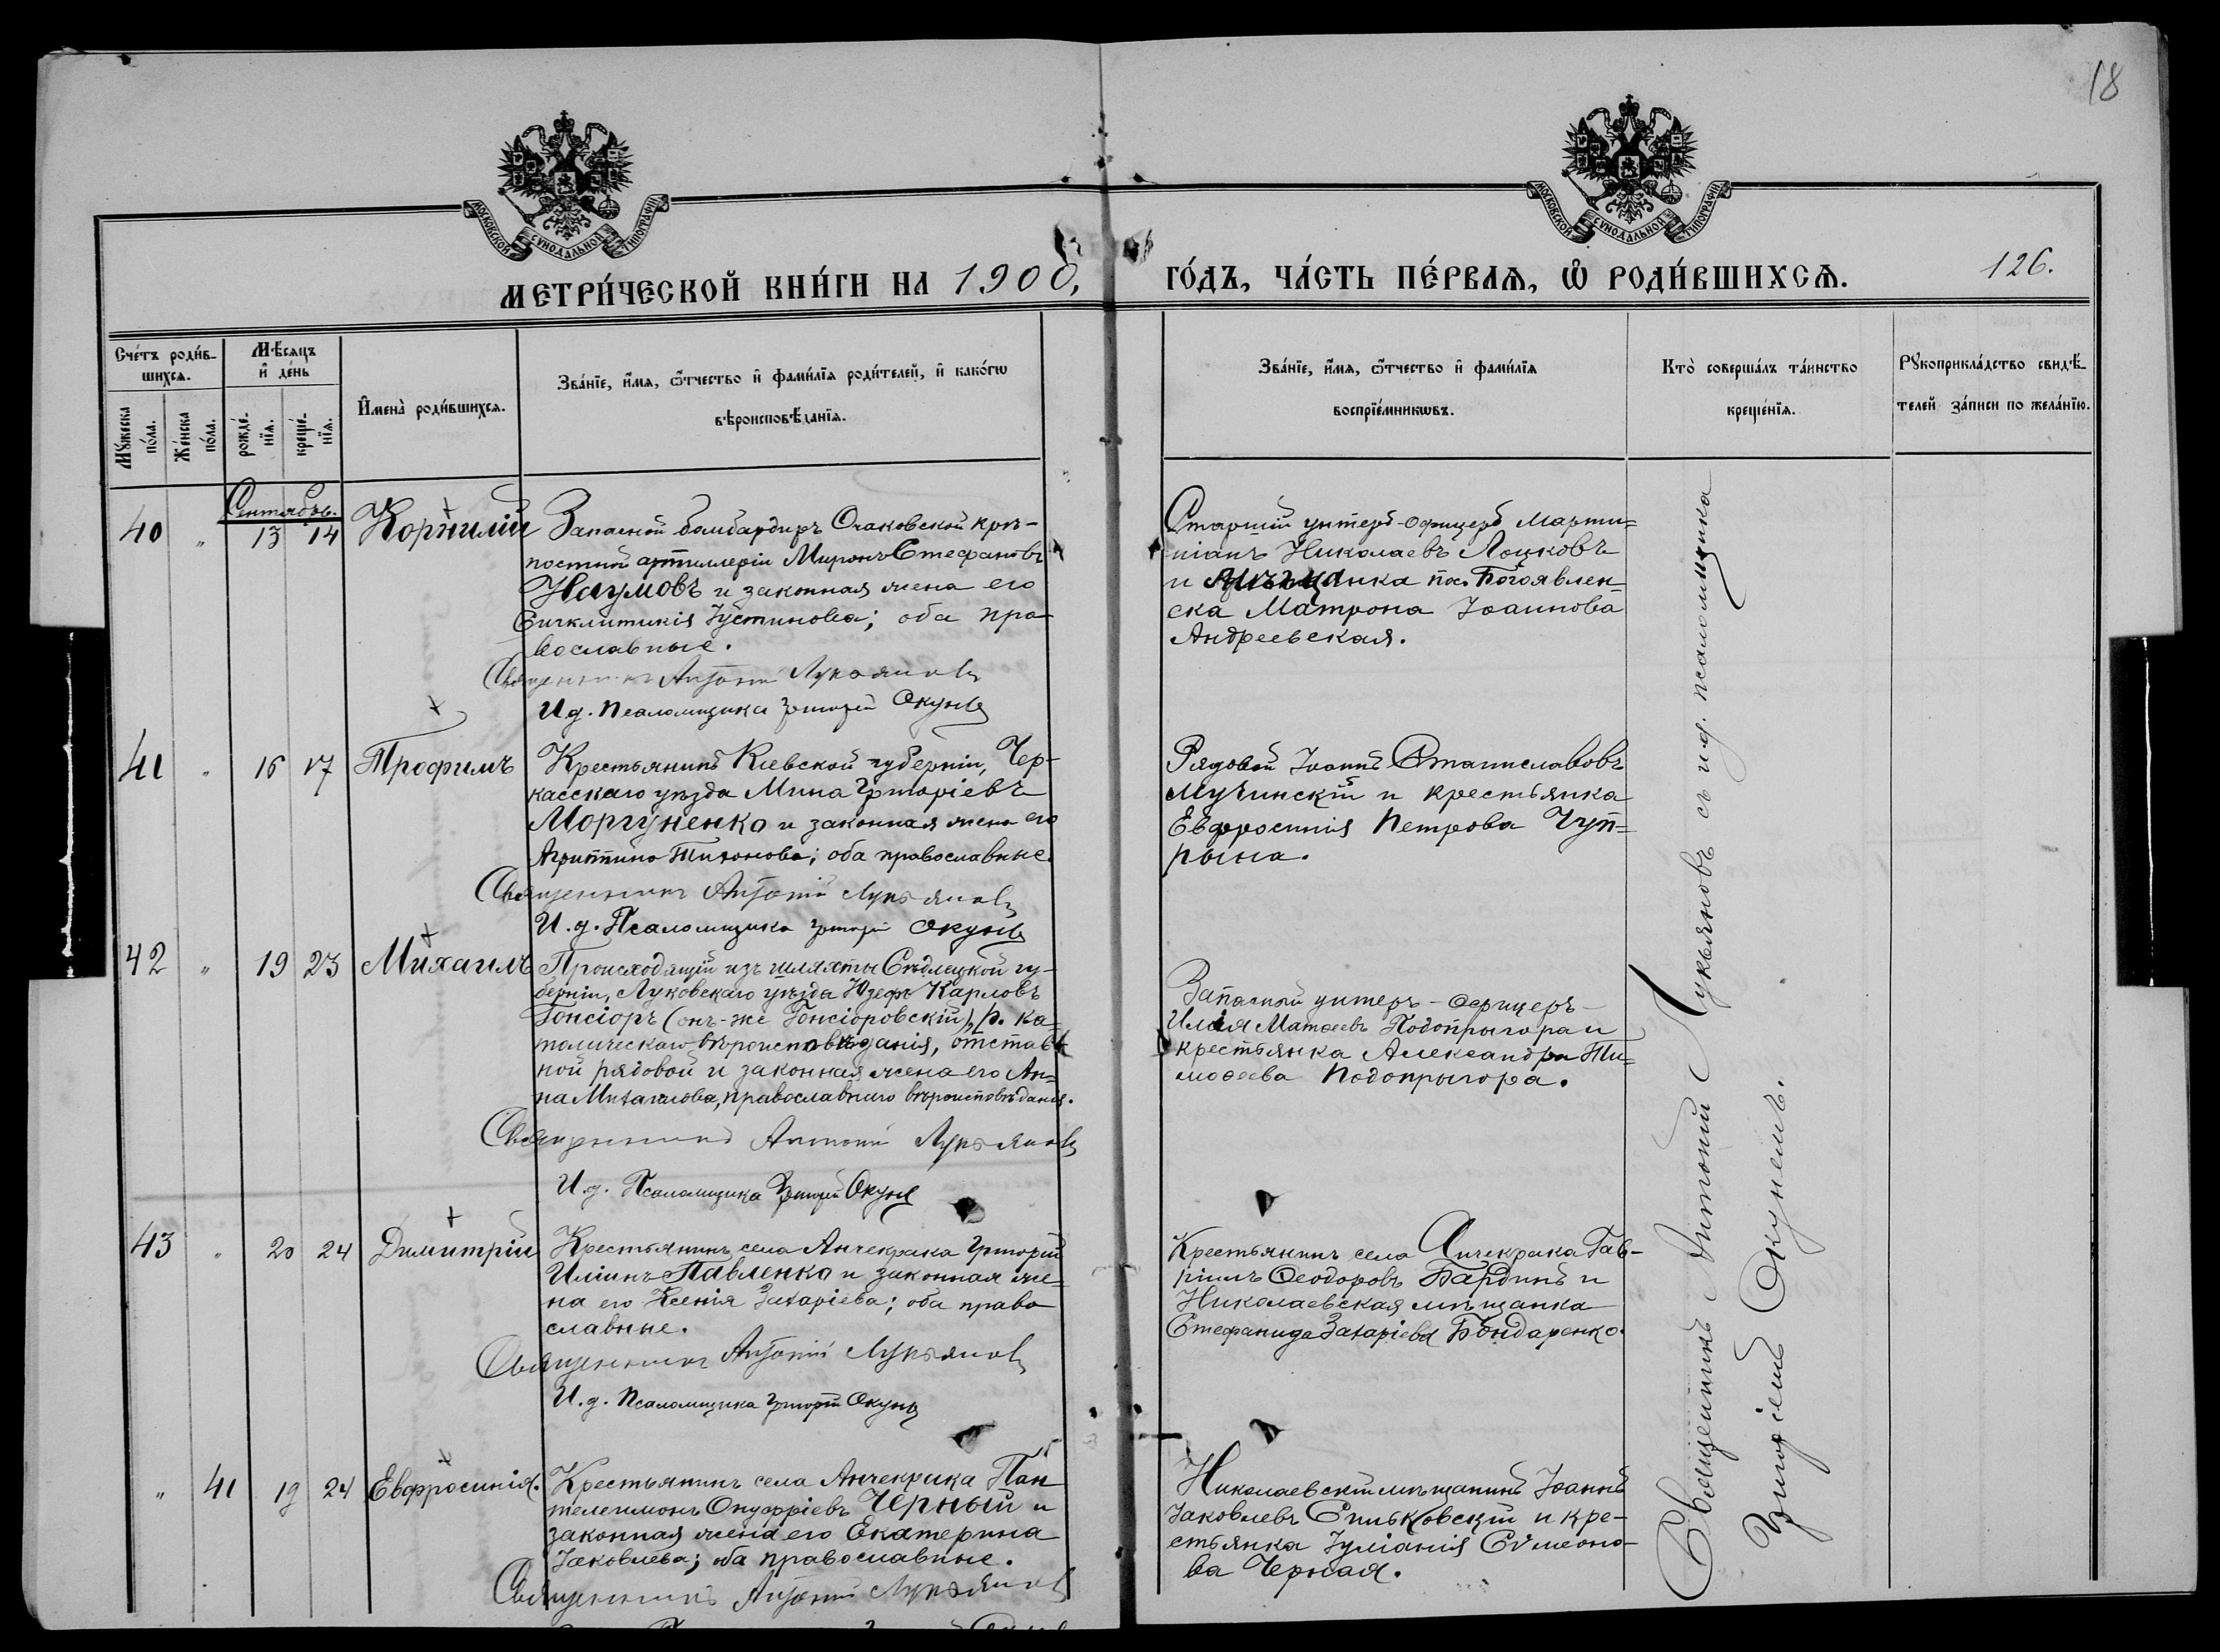 18
МОСКОВСКОЙ СѴНОДАЛЬНОЙ ТИПОГРАФІИ
МОСКОВСКОЙ СѴНОДАЛЬНОЙ ТИПОГРАФІИ
МЕТРИ́ЧЕСКОЙ КНИ́ГИ НА 1900,
ГО́ДЪ, ЧА́СТЬ ПЕ́РВАЯ, Ѡ҆ РОДИ́ВШИХСѦ.
126.
Сче́тъ роди́в-
шихсѧ.
Мѣ́сяцъ
и҆ де́нь
Мꙋ́жеска
по́ла.
Же́нска
по́ла.
рожде́-
нїѧ.
креще́-
нїѧ.
И҆мена̀ роди́вшихсѧ.
Зва́нїе, и҆́мѧ, ѻ҆́тчество и҆ фами́лїѧ роди́телей, и҆ како́гѡ
вѣроисповѣ́данїѧ.
Зва́нїе, и҆́мѧ, ѻ҆́тчество и҆ фами́лїѧ
воспрїе́мникѡвъ.
Кто̀ соверша́лъ та́инство
креще́нїѧ.
Рꙋкоприкла́дство свидѣ́-
телей за́писи по жела́нїю.
Сентябрь.
40 " 13 14 Корнилій
Запасной бомбардиръ Очаковской крѣ-
постной артиллеріи Миронъ Стефановъ
Наумовъ и законная жена его
Синклитикія Іустинова; оба пра-
вославные.
Священникъ Антоній Лукьяновъ
И.д. Псаломщика Григорій Окунь
Старшій унтеръ-офицеръ Марти-
ніанъ Николаевъ Лоцковъ
и мѣщанка пос. Богоявлен-
ска Матрона Іоаннова
Андреевская.
41 " 16 17 Трофимъ
Крестьянинъ Кіевской губерніи, Чер-
касскаго уѣзда Мина Григоріевъ
Моргуненко и законная жена его
Агриппина Тихонова; оба православные.
Священникъ Антоній Лукьяновъ
И.д. Псаломщика Григорій Окунь
Рядовой Іоаннъ Станиславовъ
Мучинскій и крестьянка
Евфросинія Петрова Чуп-
рына.
42 " 19 23 Михаилъ
Происходящій изъ шляхты Сѣдлецкой гу-
берніи, Луковскаго уѣзда Юзефъ Карловъ
Гонсіоръ (онъ-же Гонсіоровскій), р. ка-
толическаго вѣроисповѣданія, отстав-
ной рядовой и законная жена его Ан-
на Михаилова, православнаго вѣроисповѣданія.
Священникъ Антоній Лукьяновъ
И.д. Псаломщика Григорій Окунь
Запасный унтеръ-офицеръ
Илія Матѳеевъ Подопрыгора и
крестьянка Александра Ти-
моѳеева Подопрыгора.
43 " 20 24 Димитрій
Крестьянинъ села Анчекрака Григорій
Иліинъ Павленко и законная же-
на его Ксенія Захаріева; оба право
славные.
Священникъ Антоній Лукьяновъ
И.д. Псаломщика Григорій Окунь
Крестьянинъ села Анчекрака Гав-
ріилъ Ѳеодоровъ Бардинъ и
Николаевская мѣщанка
Стефанида Захаріева Бондаренко.
" 41 19 24 Евфросинія.
Крестьянинъ села Анчекрака Пан
телеимонъ Онуфріевъ Черный и
законная жена его Екатерина
Іаковлева; оба православные.
Священникъ Антоній Лукьяновъ
Николаевскій мѣщанинъ Іоаннъ
Іаковлевъ Синьковскій и кре-
стьянка Іуліанія Сѵмеоно-
ва Черная.
Священникъ Антоній Лукьяновъ съ и.д. псаломщика
Григоріемъ Окунемъ.